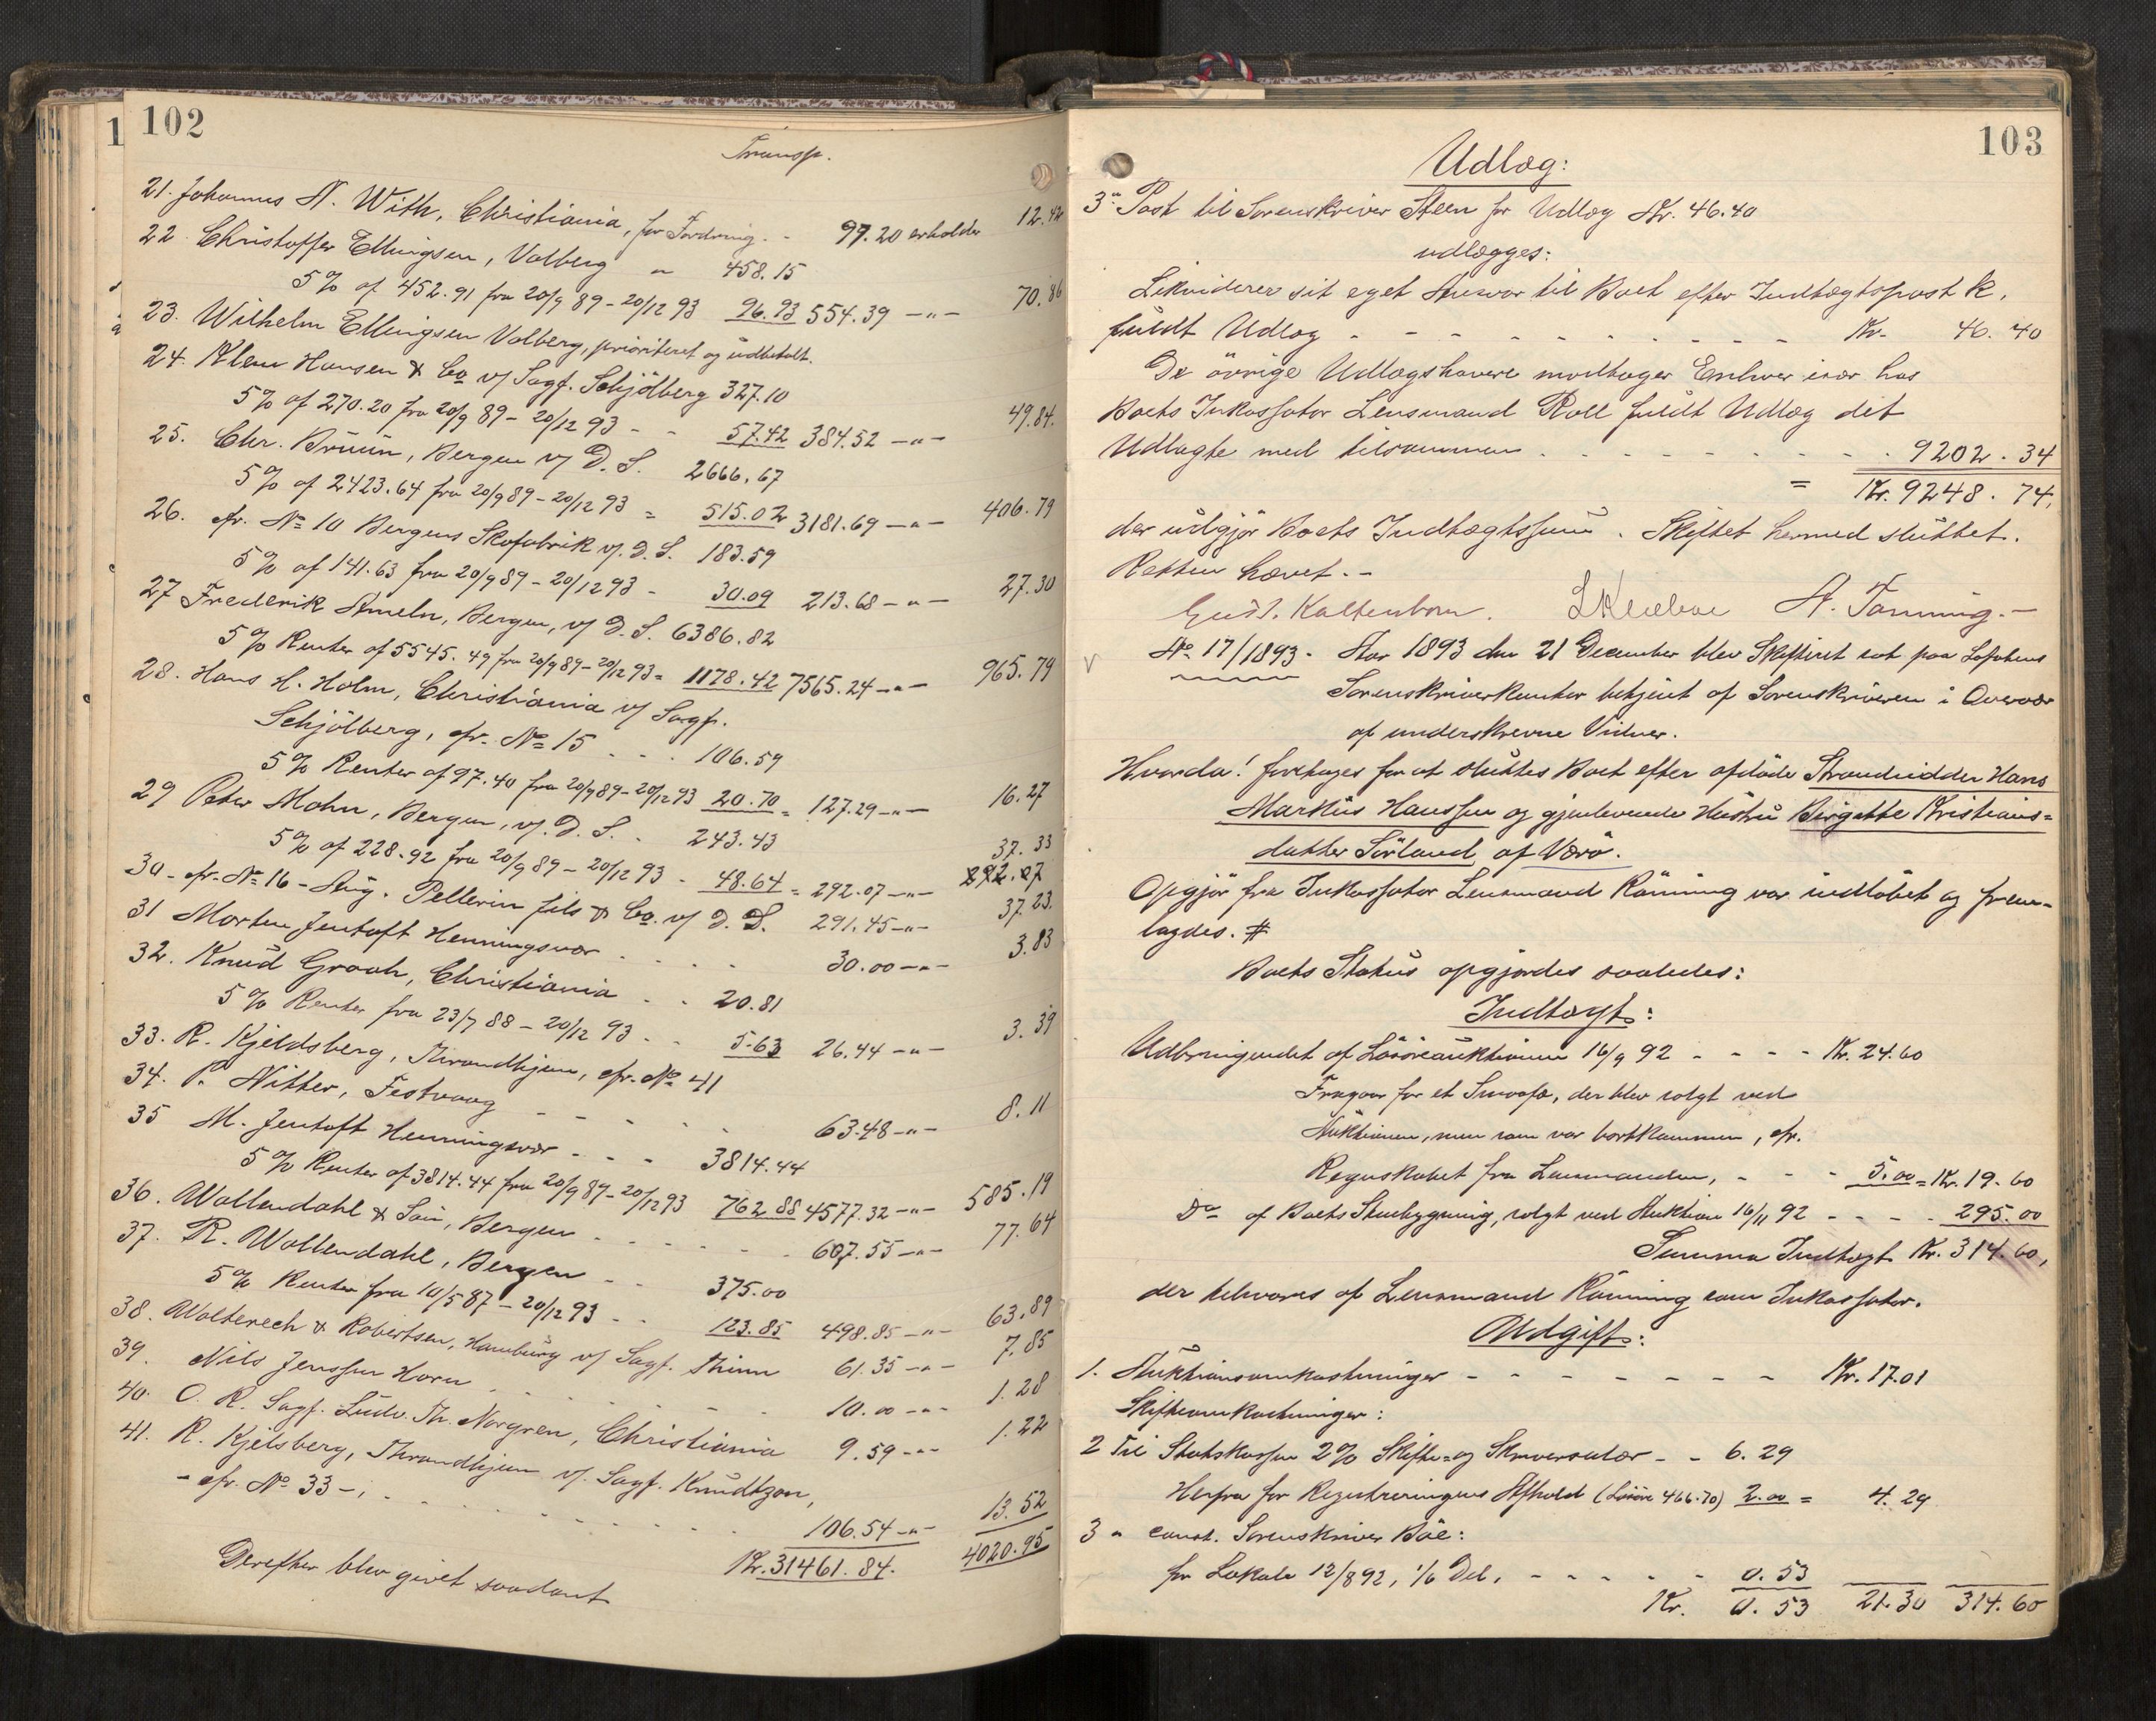 102
Transp.
21. Johannes N. With, Christiania, for Fordring - 97.20 erholder 12.42
22. Christoffer Ellingsen, Valberg " 458.15
5% af 452.91 fra 20/9 89 - 20/12 93 96.93 554.39 -"- 70.86
23. Wilhelm Ellingsen Valberg, prioriteret og udbetalt.
24. Klem Hansen & Co v/ Sagf. Schjölberg 327.10
5% af 270.20 fra 20/9 89 - 20/12 93 - - 57.42 384.52 -"- 49.84.
25. Chr. Bruun, Bergen v/ D. S. 2666.67
5% af 2423.64 fra 20/9 89 - 20/12 93 = 515.02 3181.69 -"- 406.79
26. cfr. No 10 Bergens Skofabrik v/. D. S. 183.59
5% af 141.63 fra 20/9 89 - 20/12 93 - 30.09 213.68 -"- 27.30
27 Frederik Ameln, Bergen, v/ D. S. 6386.82
5% Renter af 5545.49 fra 20/9 89 - 20/12 93 = 1178.42 7565.24 -"- 965.79
28. Hans H. Holm, Christiania v/ Sagf.
Schjölberg, cfr. No 15 - - - 106.59
5% Renter af 97.40 fra 20/9 89 - 20/12 93 20.70 = 127.29 -"- 16.27
29 Peter Mohn, Bergen, v/. D. S. - 243.43
5% af 228.92 fra 20/9 89 - 20/12 93 - 48.64 = 292.07 -"- 37.33
30 - cfr. No 16 - Aug. Pellerin fils & Co. v/ D. S. 291.45 -"- 37.23.
31 Morten Jentoft Henningsvær - - - - 30.00 -"- 3.83
32. Knud Graah, Christiania - - 20.81
5% Renter fra 23/7 88 - 20/12 93 - - 5.63 26.44 -"- 3.39
33. R. Kjeldsberg, Throndhjem, cfr. No 41
34. P. Nitter, Festvaag - - - - - 63.48 -"- 8.11
35 M. Jentoft Henningsvær - - - 3814.44
5% Renter af 3814.44 fra 20/9 89 - 20/12 93 762.88 4577.32 -"- 585.19
36. Wallendahl & Søn, Bergen - - - - - 607.55 -"- 77.64
37. R. Wallendahl, Bergen - - 375.00
5% Renter fra 10/5 87 - 20/12 93 - - 123.85 498.85 -"- 63.89
38. Woltereck & Robertsen, Hamburg v/ Sagf. Thinn 61.35 -"- 7.85
39. Nils Jenssen Horn - - - - - 10.00 -"- 1.28
40. O. R. Sagf. Ludv. Th. Norgren, Christiania 9.59 -"- 1.22
41. R. Kjelsberg, Throndhjem v/. Sagf. Knudtzon,
- cfr. No 33 -, - - - - - - - 106.54 -"- 13.52
Kr. 31461.84. 4020.95
Derefter blev givet saadant
103
Udlæg:
3die Post til Sorenskriver Steen for Udlæg Kr. 46.40
udlægges:
Likviderer sit eget Ansvar til Boet efter Indtægtspost k.
fuldt Udlæg - - - - - - - - - - Kr. 46.40
De övrige Udlægshavere modtager Enhver især hos
Boets Inkassator Lensmand Roll fuldt Udlæg det
Udlagte med tilsammen - - - - - - - 9202.34
= Kr. 9248.74,
der udgjør Boets Indtægtssum. Skiftet hermed sluttet.
Retten hævet. -
Gust. Kaltenborn. A. Tanning. -
No 17/1893. Aar 1893 den 21 December blev Skifteret sat paa Lofotens
Sorenskriverkontor betjent af Sorenskriveren i Overvær
af underskrevne Vidner.
Hvorda! foretoges for at sluttes Boet efter afdöde Strandsidder Hans
Markus Hanssen og gjenlevende Hustru Birgitte Kristians=
datter Sørland af Værö.
Opgjör fra Inkassator Lensmand Rönning var indlöbet og frem-
lagdes. #
Boets Status opgjordes saaledes:
Indtægt:
Udbringendet af Lösöreauktionen 16/9 92 - - - - Kr. 24.60
Fragaar for et Smørfa, der blev solgt ved
Auktionen, men som var bortkommen, cfr.
Regnskabet fra Lensmanden, - - - 5.00 = Kr. 19.60
Do af Boets Stuebygning, solgt ved Auktion 16/11 92 - - - - 295.00
Summa Indtægt Kr. 314.60,
der tilsvares af Lensmand Rönning som Inkassator.
Udgift:
1. Auktionsomkostninger - - - - - - - Kr. 17.01
Skifteomkostninger:
2 Til Statskassen 2% Skifte- og Skriversalær - - 6.29
Herfra for Registreringens Afhold (Lösöre 466.70) 2.00 = 4.29
3 " const. Sorenskriver Böe:
for Lokale 12/8 92, 1/6 Del, - - - - - 0.53
Kr. 0.53 21.30 314.60